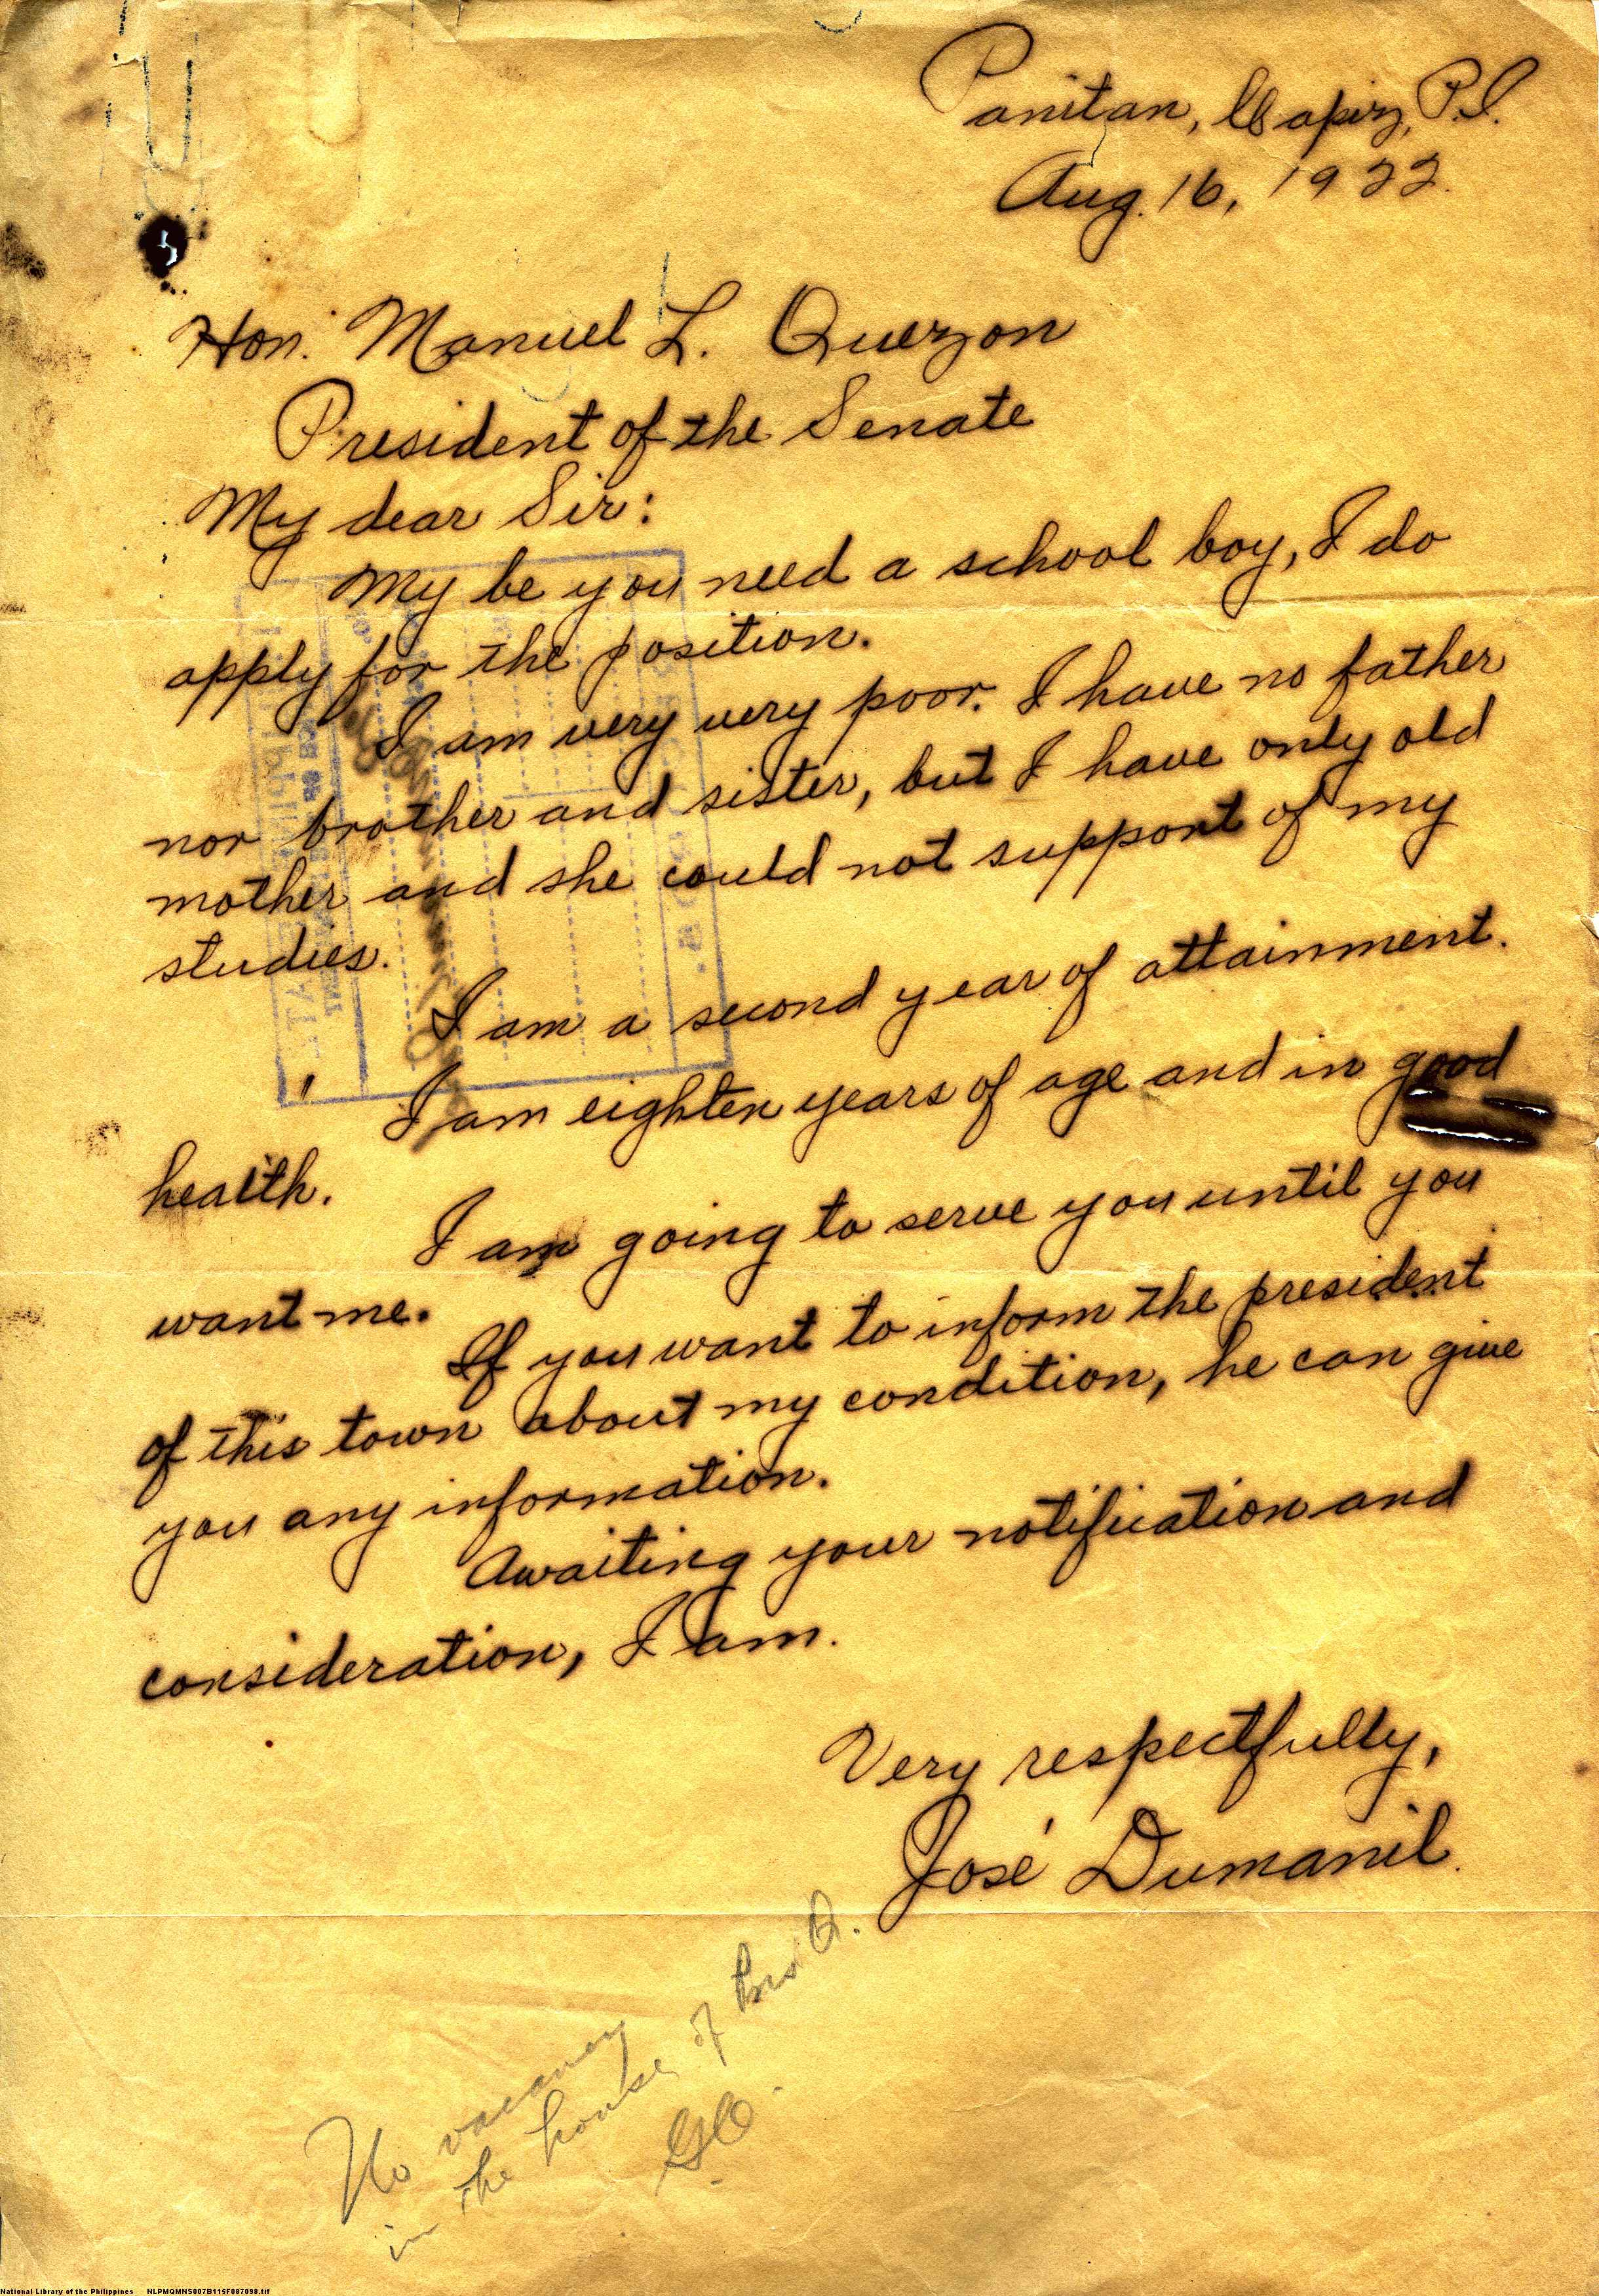 Panitan, Capiz, P.I.
Aug. 16, 1922.
Hon. Manuel L. Quezon
President of the Senate
My dear Sir:
My be you need a school boy, I do
apply for the position.
I am very very poor. I have no father
nor brother and sister, but I have only old
mother and she could not support of my
studies.
I am a second year of attainment.
I am eighten years of age and in good
health.
I am going to serve you until you
want me.
If you want to inform the president
of this town about my condition, he can give
you any information.
Awaiting your notification and
consideration, I am.
Very respectfully,
José Dumanil.
No vacancy
in the house of Pres Q.
National Library of the Philippines NLPMQMNS007B115F087098.tif